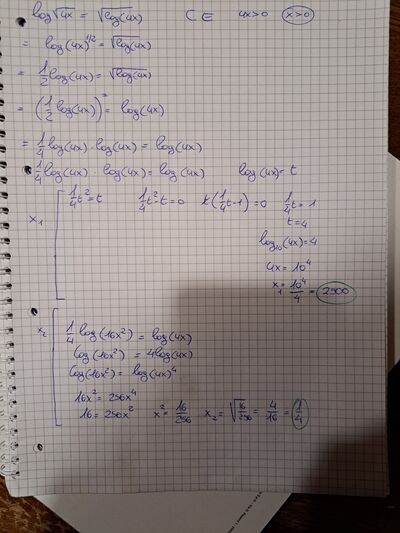 log√4x = √log(4x)    C E    4x>0    x>0
= log(4x)^1/2 = √log(4x)
= 1/2 log(4x) = √log(4x)
= (1/2 log(4x))² = log(4x)
= 1/4 log(4x) · log(4x) = log(4x)
1/4 log(4x) · log(4x) = log(4x)    log(4x) = t
x₁    1/4 t² = t    1/4 t² - t = 0    t(1/4 t - 1) = 0    1/4 t = 1
t = 4
log₁₀(4x) = 4
4x = 10⁴
x₁ = 10⁴/4 = 2500
x₂    1/4 log(16x²) = log(4x)
log(16x²) = 4log(4x)
log(16x²) = log(4x)⁴
16x² = 256x⁴
16 = 256x²    x² = 16/256    x₂ = √16/256 = 4/16 = 1/4